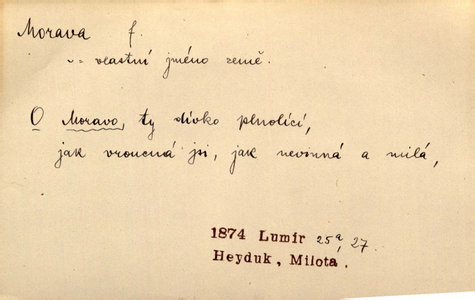 Morava f.
vlastní jméno země.
O Moravo, ty dívko plnolící,
jak vroucná jsi, jak nevinná a milá,
1874 Lumír 25a, 27.
Heyduk, Milota.